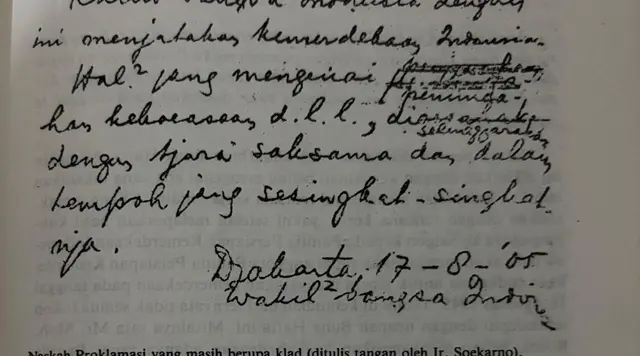 Kami bangsa Indonesia dengan
ini menjatakan kemerdekaan Indonesia.
Hal² jang mengenai peminda-
han kekoeasaan d.l.l., diselenggarakan
dengan tjara saksama dan dalam
tempoh jang sesingkat-singkat-
nja.
Djakarta, 17 - 8 - '05
Wakil² bangsa Indon
Naskah Proklamasi yang masih berupa klad (ditulis tangan oleh Ir. Soekarno).